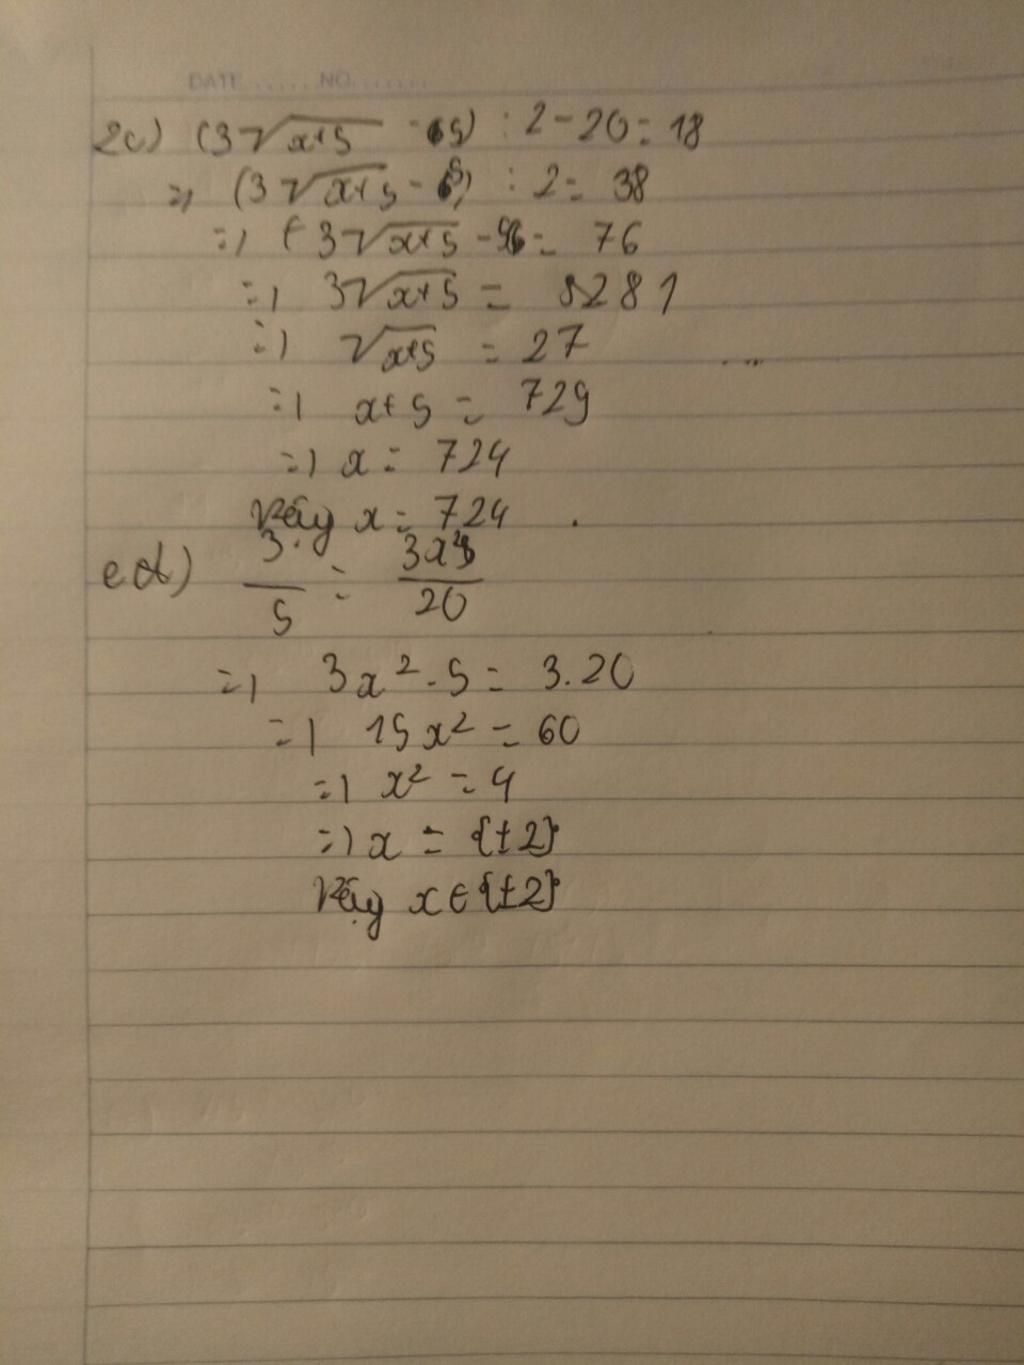 DATE ...... NO. ......
2c) (3√x+5 - 5) : 2 - 20 = 18
=> (3√x+5 - 5) : 2 = 38
=> 3√x+5 - 5 = 76
=> 3√x+5 = 81
=> √x+5 = 27
=> x+5 = 729
=> x = 724
Vậy x = 724 .
d) 3/5 = 3x²/20
=> 3x² . 5 = 3.20
=> 15x² = 60
=> x² = 4
=> x = {±2}
Vậy x ∈ {±2}